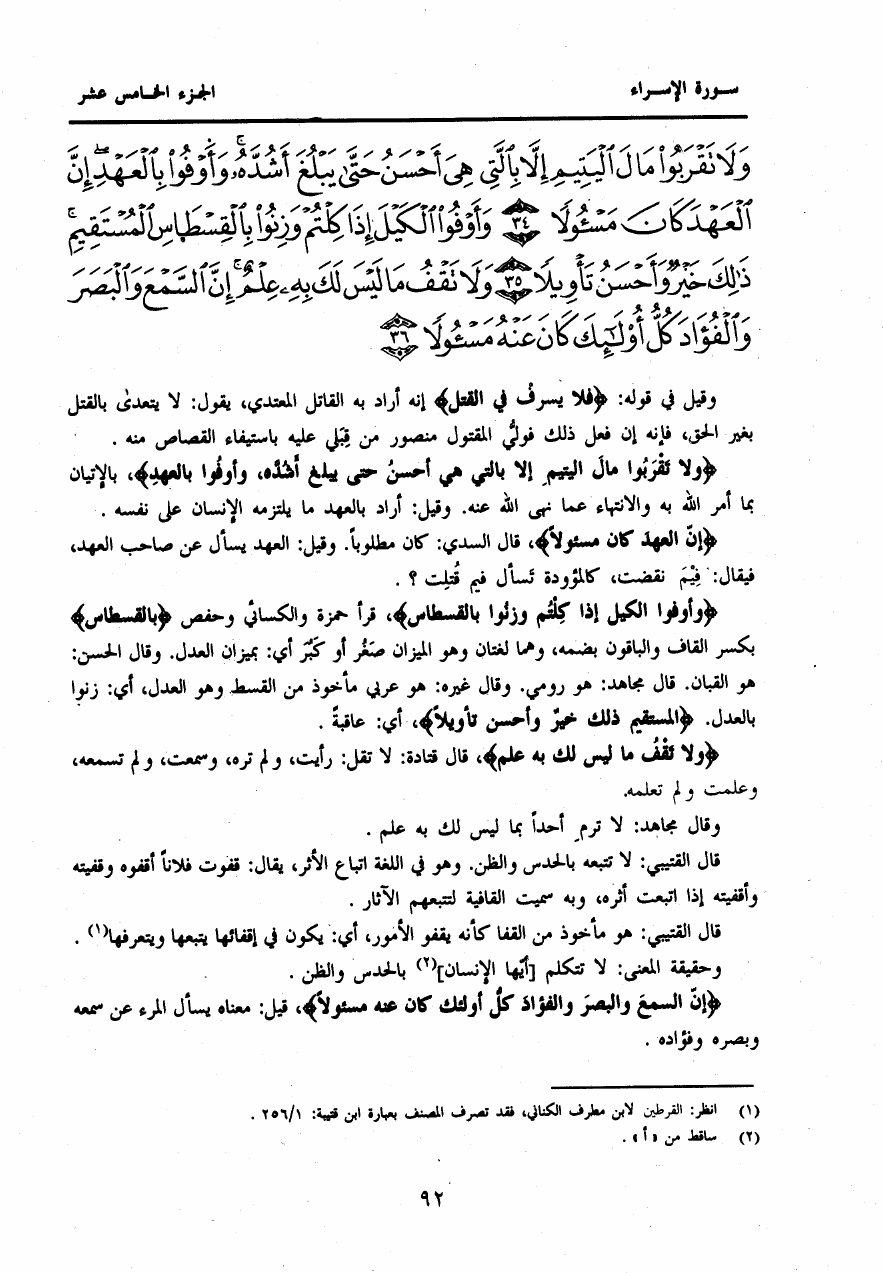 سورة الإسراء
الجزء الخامس عشر
وَلَا تَقْرَبُوا۟ مَالَ ٱلْيَتِيمِ إِلَّا بِٱلَّتِى هِىَ أَحْسَنُ حَتَّىٰ يَبْلُغَ أَشُدَّهُۥ ۚ وَأَوْفُوا۟ بِٱلْعَهْدِ ۖ إِنَّ
ٱلْعَهْدَ كَانَ مَسْـُٔولًا ٣٤ وَأَوْفُوا۟ ٱلْكَيْلَ إِذَا كِلْتُمْ وَزِنُوا۟ بِٱلْقِسْطَاسِ ٱلْمُسْتَقِيمِ ۚ
ذَٰلِكَ خَيْرٌ وَأَحْسَنُ تَأْوِيلًا ٣٥ وَلَا تَقْفُ مَا لَيْسَ لَكَ بِهِۦ عِلْمٌ ۚ إِنَّ ٱلسَّمْعَ وَٱلْبَصَرَ
وَٱلْفُؤَادَ كُلُّ أُو۟لَـٰٓئِكَ كَانَ عَنْهُ مَسْـُٔولًا ٣٦
وقيل في قوله: ﴿فلا يسرفْ في القتل﴾ إنه أراد به القاتل المعتدي، يقول: لا يتعدىٰ بالقتل
بغير الحق، فإنه إن فعل ذلك فوليُّ المقتول منصور من قِبَلي عليه باستيفاء القصاص منه .
﴿ولا تَقْرَبُوا مالَ اليتيمِ إلا بالتي هي أحسنُ حتى يبلغ أَشُدَّه، وأوفُوا بالعهدِ﴾، بالإتيان
بما أمر الله به والانتهاء عما نهى الله عنه. وقيل: أراد بالعهد ما يلتزمه الإنسان على نفسه .
﴿إنّ العهدَ كان مسئولاً﴾، قال السدي: كان مطلوباً. وقيل: العهد يسأل عن صاحب العهد،
فيقال: فِيْمَ نقضت، كالمؤودة تَسأل فيم قُتلِت ؟ .
﴿وأوفوا الكيل إذا كِلْتُم وزِنُوا بالقسطاس﴾، قرأ حمزة والكسائي وحفص ﴿بالقسطاس﴾
بكسر القاف والباقون بضمه، وهما لغتان وهو الميزان صَغُر أو كَبُرَ أي: بميزان العدل. وقال الحسن:
هو القبان. قال مجاهد: هو رومي. وقال غيره: هو عربي مأخوذ من القسط وهو العدل، أي: زنوا
بالعدل. ﴿المستقيم ذلك خيرٌ وأحسن تأويلاً﴾، أي: عاقبةً .
﴿ولا تَقْفُ ما ليس لك به علم﴾، قال قتادة: لا تقل: رأيت، ولم تره، وسمعت، ولم تسمعه،
وعلمت ولم تعلمه.
وقال مجاهد: لا ترمِ أحداً بما ليس لك به علم .
قال القتيبي: لا تتبعه بالحدس والظن. وهو في اللغة اتباع الأثر، يقال: قفوت فلاناً أقفوه وقفيته
وأقفيته إذا اتبعت أثره، وبه سميت القافية لتتبعهم الآثار .
قال القتيبي: هو مأخوذ من القفا كأنه يقفو الأمور، أي: يكون في إقفائها يتبعها ويتعرفها(١) .
وحقيقة المعنى: لا تتكلم [أيّها الإنسان](٢) بالحدس والظن .
﴿إنّ السمعَ والبصرَ والفؤادَ كلُّ أولئك كان عنه مسئولاً﴾، قيل: معناه يسأل المرء عن سمعه
وبصره وفؤاده .
(١) انظر: القرطين لابن مطرف الكناني، فقد تصرف المصنف بعبارة ابن قتيبة: ٢٥٦/١ .
(٢) ساقط من «أ» .
٩٢